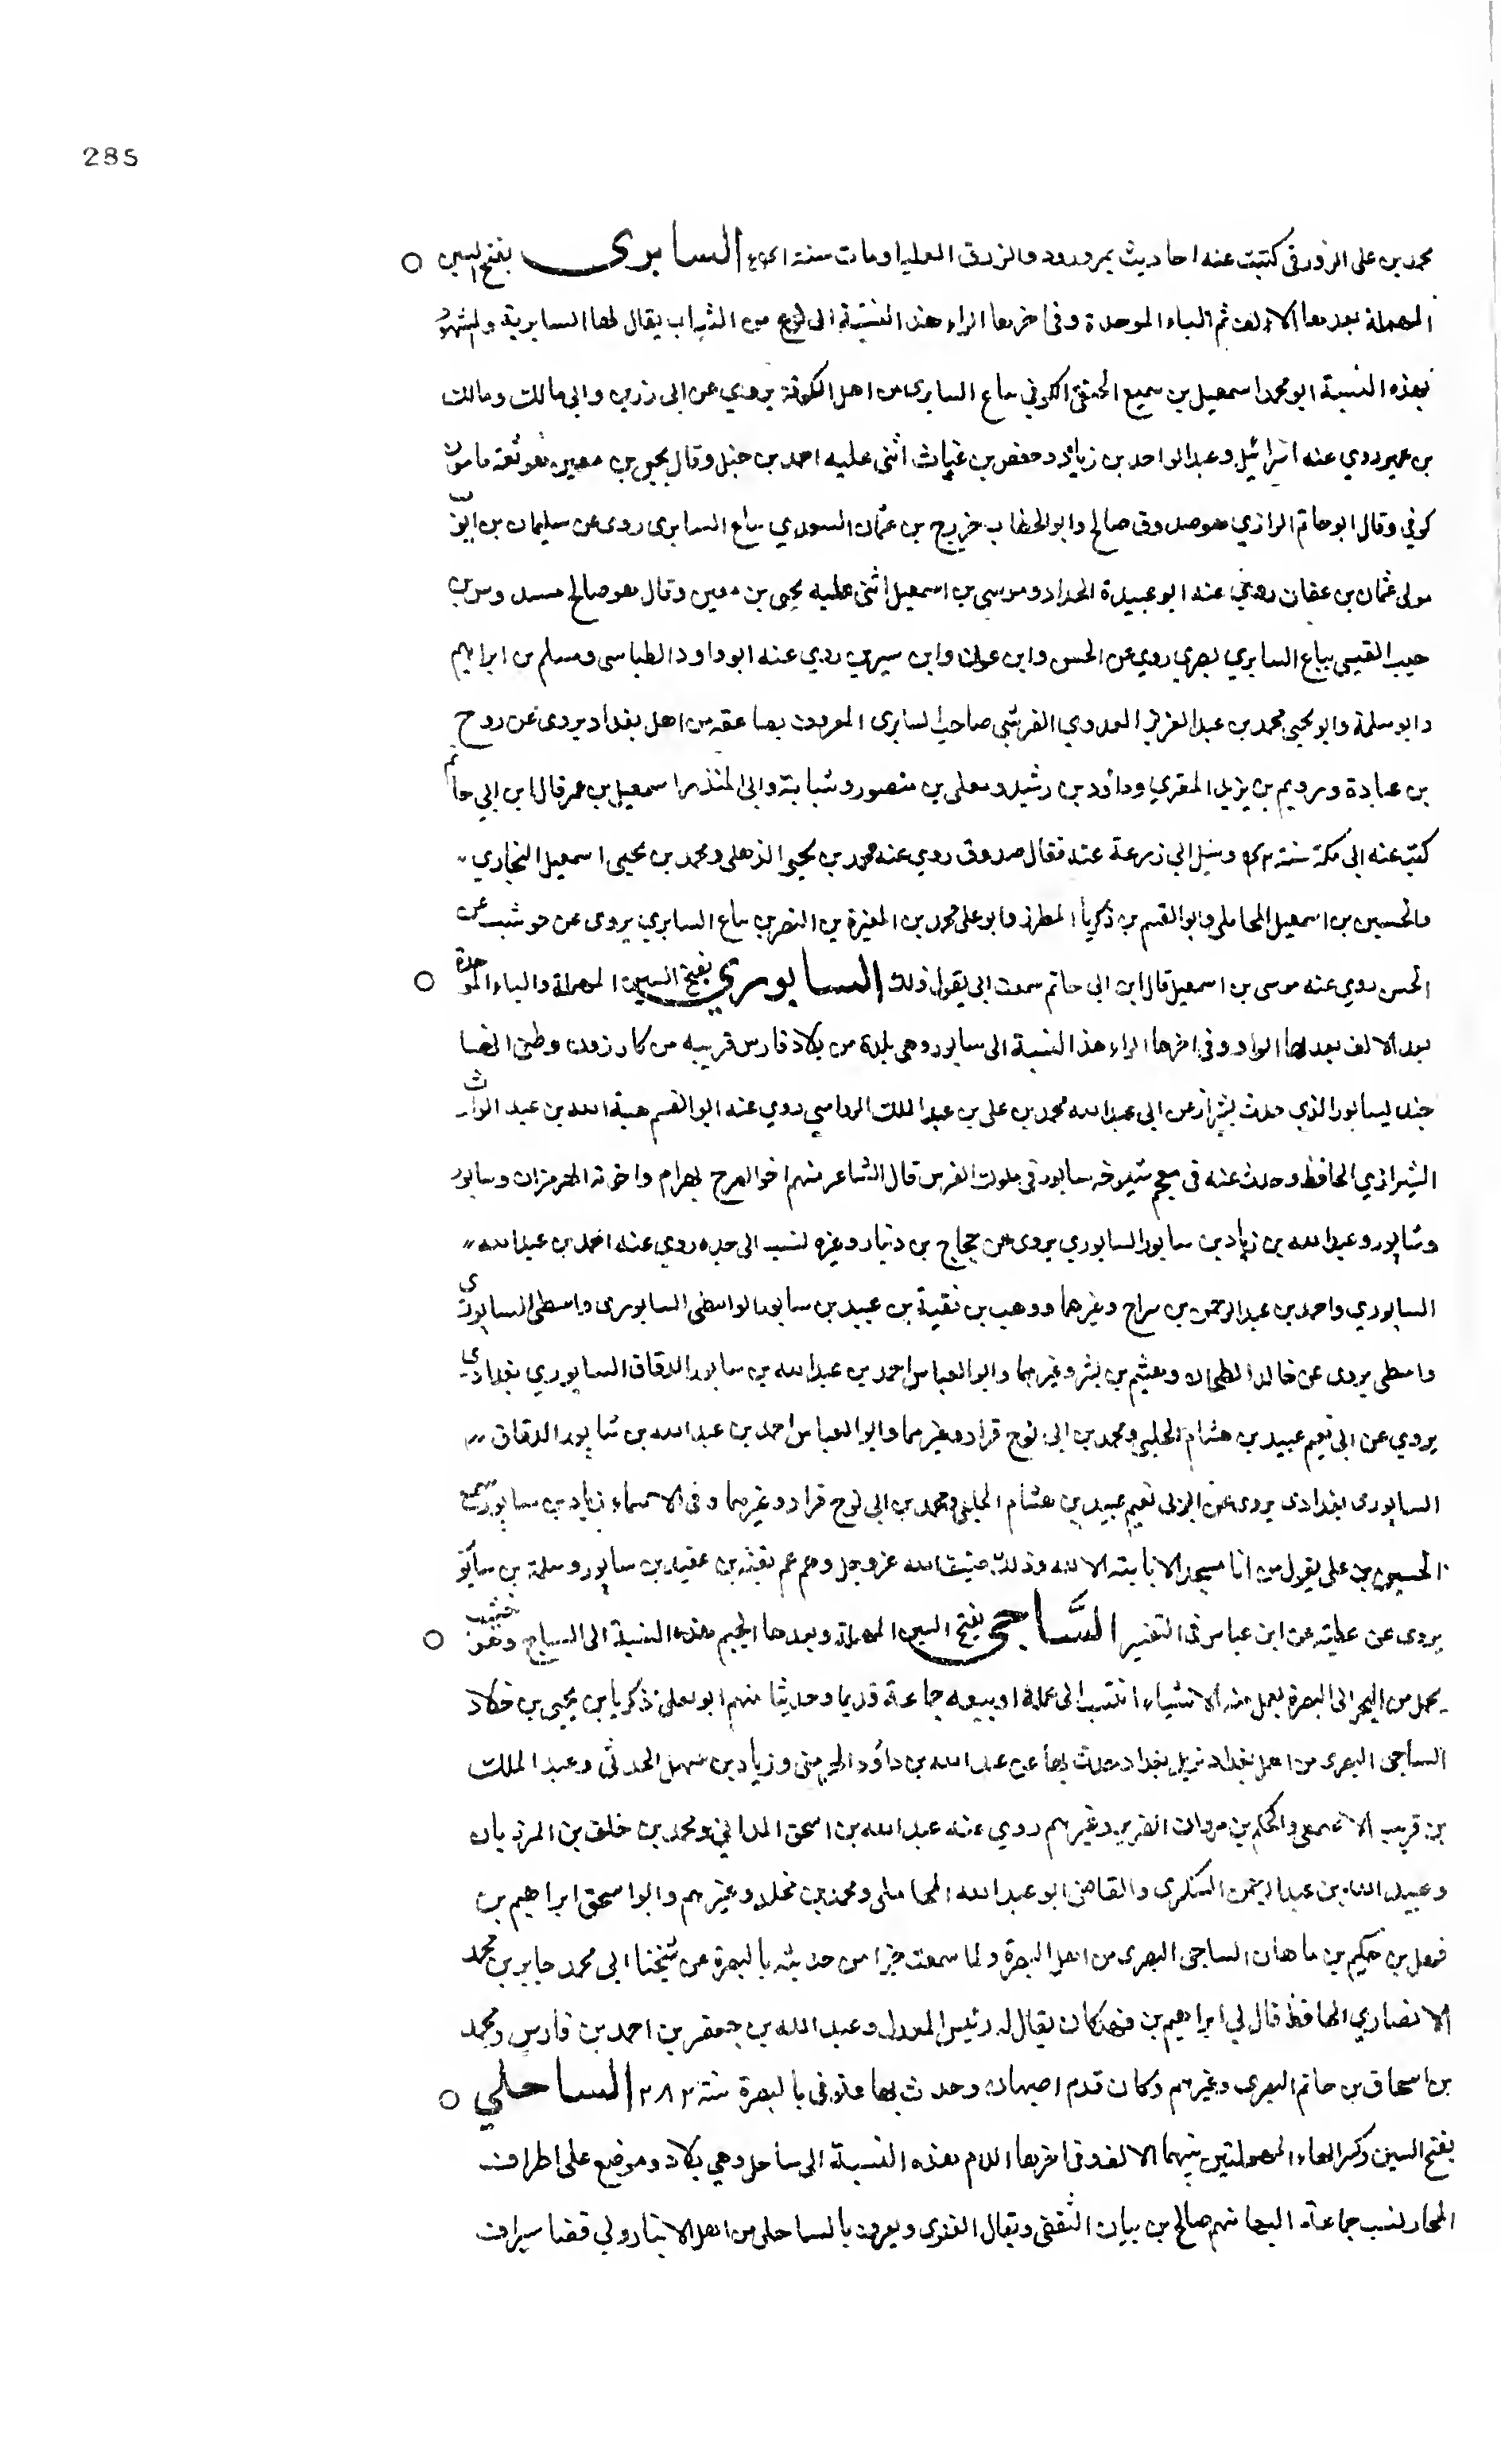 285
محمد بن على الزورقى كتبت عنه احاديث بمرورود والزرق العليا ومات سنة السابرى بفتح السين
المهملة بعدها الالف ثم الباء الموحدة وفى اخرها الراء هذه النسبة الى نوع من الثياب يقال لها السابرية والمشهور
بهذه النسبة ابو محمد اسمعيل بن سميع الحنفى الكوفي بياع السابرى من اهل الكوفة يروي عن ابى رزين وابى مالك ومالك
بن عمير روي عنه اسرائيل وعبد الواحد بن زياد وحفص بن غياث اثنى عليه احمد بن حنبل وقال يحيى بن معين هو ثقة مامون
كوفي وقال ابو حاتم الرازي هو صدوق صالح وابو الخطاب خزرج بن عثمان السعدي بياع السابرى روى عن سليمان بن ابي ايوب
مولى عثمان بن عفان روى عنه ابو عبيدة الحداد وموسى بن اسمعيل اثنى عليه يحيى بن معين وقال هو صالح وس بن
حبيب القيسى بياع السابري بصري روي عن الحسن وابن عون وابن سيرين روي عنه ابو داود الطيالسى ومسلم بن ابراهيم
وابو سلمة وابو يحيى محمد بن عبد العزيز العدوي القرشى صاحب السابرى المعروف بصاعقة من اهل بغداد يروى عن روح
بن عبادة ورويم بن يزيد المقري وداود بن رشيد ومعلى بن منصور وشبابة وابى المنذر اسمعيل بن عمر قال ابن ابي حاتم
كتب عنه ابى مكة سنة وسئل ابي زرعة عنه فقال صدوق روي عنه محمد بن يحيى الذهلى ومحمد بن يحيى اسمعيل البخاري
والحسين بن اسمعيل المحاملى وابو القسم بن زكريا المطرز وابو على محمد بن المغيرة بن النضر بياع السابري يروى عن حوشب عن
الحسن روي عنه موسى بن اسمعيل قال ابن ابى حاتم سمعت ابى يقول ذلك السابوري بفتح السين المهملة والباء الموحدة
بعد الالف بعدها الواو وفى اخرها الراء هذه النسبة الى سابور وهى بلدة من بلاد فارس قريبه من كازرون وظنى انها
جنديسابور الذي حدث بشيراز عن ابى عبد الله محمد بن على بن عبد الملك روي عنه ابو القسم هبة الله بن عبد الوارث
الشيرازي الحافظ وحدث عنه فى معجم شيوخه سابور فى ملوك الفرس قال الشاعر منهم اخو الصرح بهرام واخوته الهرمزان وسابور
وشابور وعبد الله بن زياد بن سابور السابوري يروى عن حجاج بن دينار وغيره نسب الى جده روي عنه احمد بن عبد الله
السابوري واحمد بن عبد الرحمن بن سراج وغيرهما ووهب بن بقية بن عبيد بن سابور الواسطى السابورى واسطى السابوري
واسطى يروى عن خالد الطحان وهشيم بن بشر وغيرهما وابو العباس احمد بن عبد الله بن سابور الدقاق السابوري بغدادي
يروي عن ابى نعيم عبيد بن هشام الحلبي ومحمد بن ابى نوح قراد وغيرهما وابو العباس احمد بن عبد الله بن شابور الدقاق
السابورى بغدادى يروى عن ابى نعيم عبيد بن هشام الحلبى ومحمد بن ابى نوح قراد وغيرهما وفى الاسماء زياد بن سابور سمع
الحسين بن على يقول من اتا مسجدا لا الا لله وذلك ضيف الله عز وجل وهم عم بقية بن عبيد بن سابور وسلمة بن سابور
يروى عن عطية عن ابن عباس فى التفسير السَّاجى بفتح السين المهملة وبعدها الجيم هذه النسبة الى الساج وهو خشب
يحمل من البحر الى البصرة يعمل منه الاشياء انتسب الى عمله او بيعه جماعة قديما وحديثا منهم ابو يعلى زكريا بن يحيى بن خلاد
الساجى البصرى من اهل بغداد نزيل بغداد حدث بها عن عبد الله بن داود الخريبى وزياد بن سهل الحدثى وعبد الملك
بن قريب الاصمعى والحكم بن مروان الضرير وغيرهم روي عنه عبد الله بن اسحق المداينى ومحمد بن خلف بن المرزبان
وعبيد الله بن عبد الرحمن السكرى والقاضى ابو عبد الله المحاملى ومحمد بن مخلد وغيرهم وابو اسحق ابراهيم بن
فهد بن حكيم بن ماهان الساجى البصرى من اهل البصرة ولما سمعت جزا من حديثه بالبصرة عن شيخنا ابى محمد جابر بن محمد
الانصاري الحافظ قال لي ابراهيم بن فهد كان يقال له رئيس المعدل وعبد الله بن جعفر بن احمد بن فارس ومحمد
بن اسحاق بن حاتم البصرى وغيرهم وكان قدم اصبهان وحدث بها وتوفى بالبصرة سنة ٢٨٢ الساحلي
بفتح السين وكسر الحاء المهملتين بينهما الالف وفى اخرها اللام هذه النسبة الى ساحل وهي بلاد وموضع على اطراف
البحار نسب جماعة اليها منهم صالح بن بيان الثقفى ويقال العنوى ويعرف بالساحلى من اهل الانبار ولي قضا سيراف